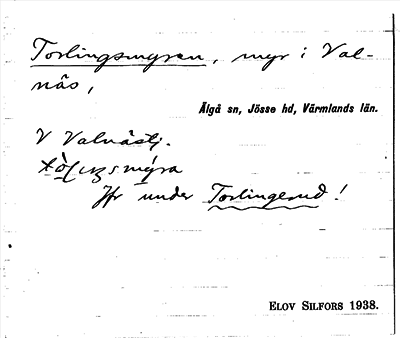 Torlingsmyren, myr i Val-
näs,
Älgå sn, Jösse hd, Värmlands län.
V Valnästj.
Jfr under Torlingerud!
ELOV SILFORS 1938.